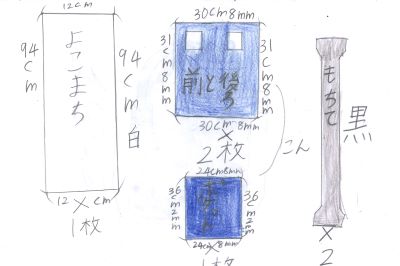 12cm
94cm
よこまち
94cm
白
12cm
×
1枚
30cm8mm
31cm8mm
前と後ろ
31cm8mm
30cm8mm
×
2枚
こん
24cm8mm
36cm2mm
36cm2mm
24cm8mm
×
1枚
もちて
黒
×
2